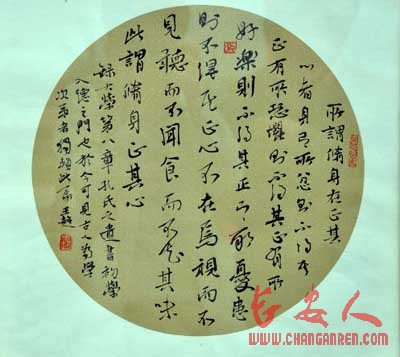 所謂脩身在正其
心者身有所忿則不得其
正有所恐懼則不得其正有所
好樂則不得其正有所憂患
則不得其正心不在焉視而不
見聽而不聞食而不知其味
此謂脩身正其心
錄大學第八章孔氏之遺書初學
入德之門也於今可見古人為學
次第者獨賴此篇
长安人
WWW.CHANGANREN.COM